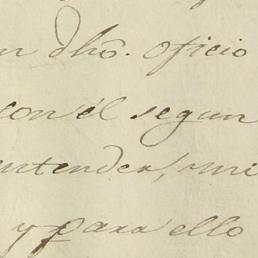 n dho. oficio
con él segun
entender, mi
y para ello